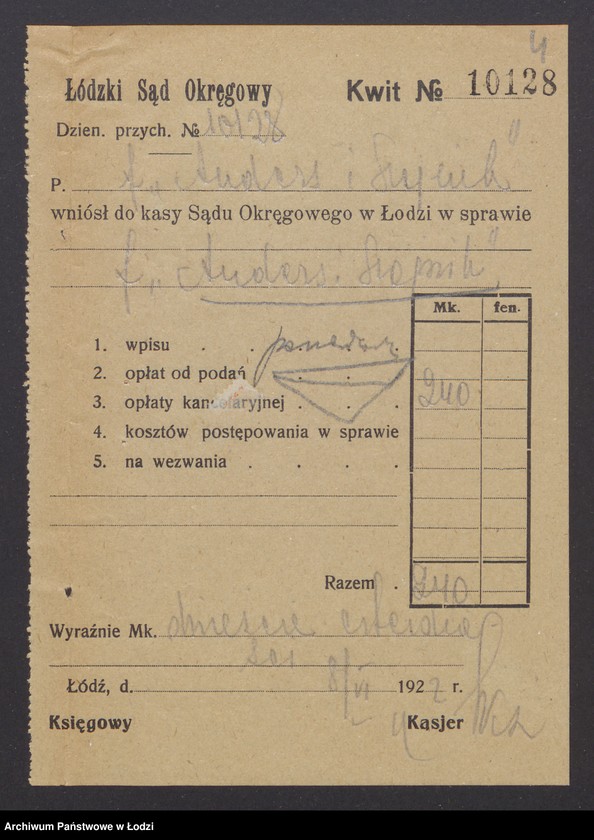 4
Łódzki Sąd Okręgowy Kwit № 10128
Dzien. przych. № 10128
P. f. „Anders i
wniósł do kasy Sądu Okręgowego w Łodzi w sprawie
f. „Anders i
Mk. fen.
1. wpisu . .
2. opłat od podań . . .
3. opłaty kancelaryjnej . . . 240
4. kosztów postępowania w sprawie
5. na wezwania . . . .
Razem . 240
Wyraźnie Mk. dwieście czterdzieści
Łódź, d. 8/VI 1922 r.
Księgowy Kasjer
Archiwum Państwowe w Łodzi